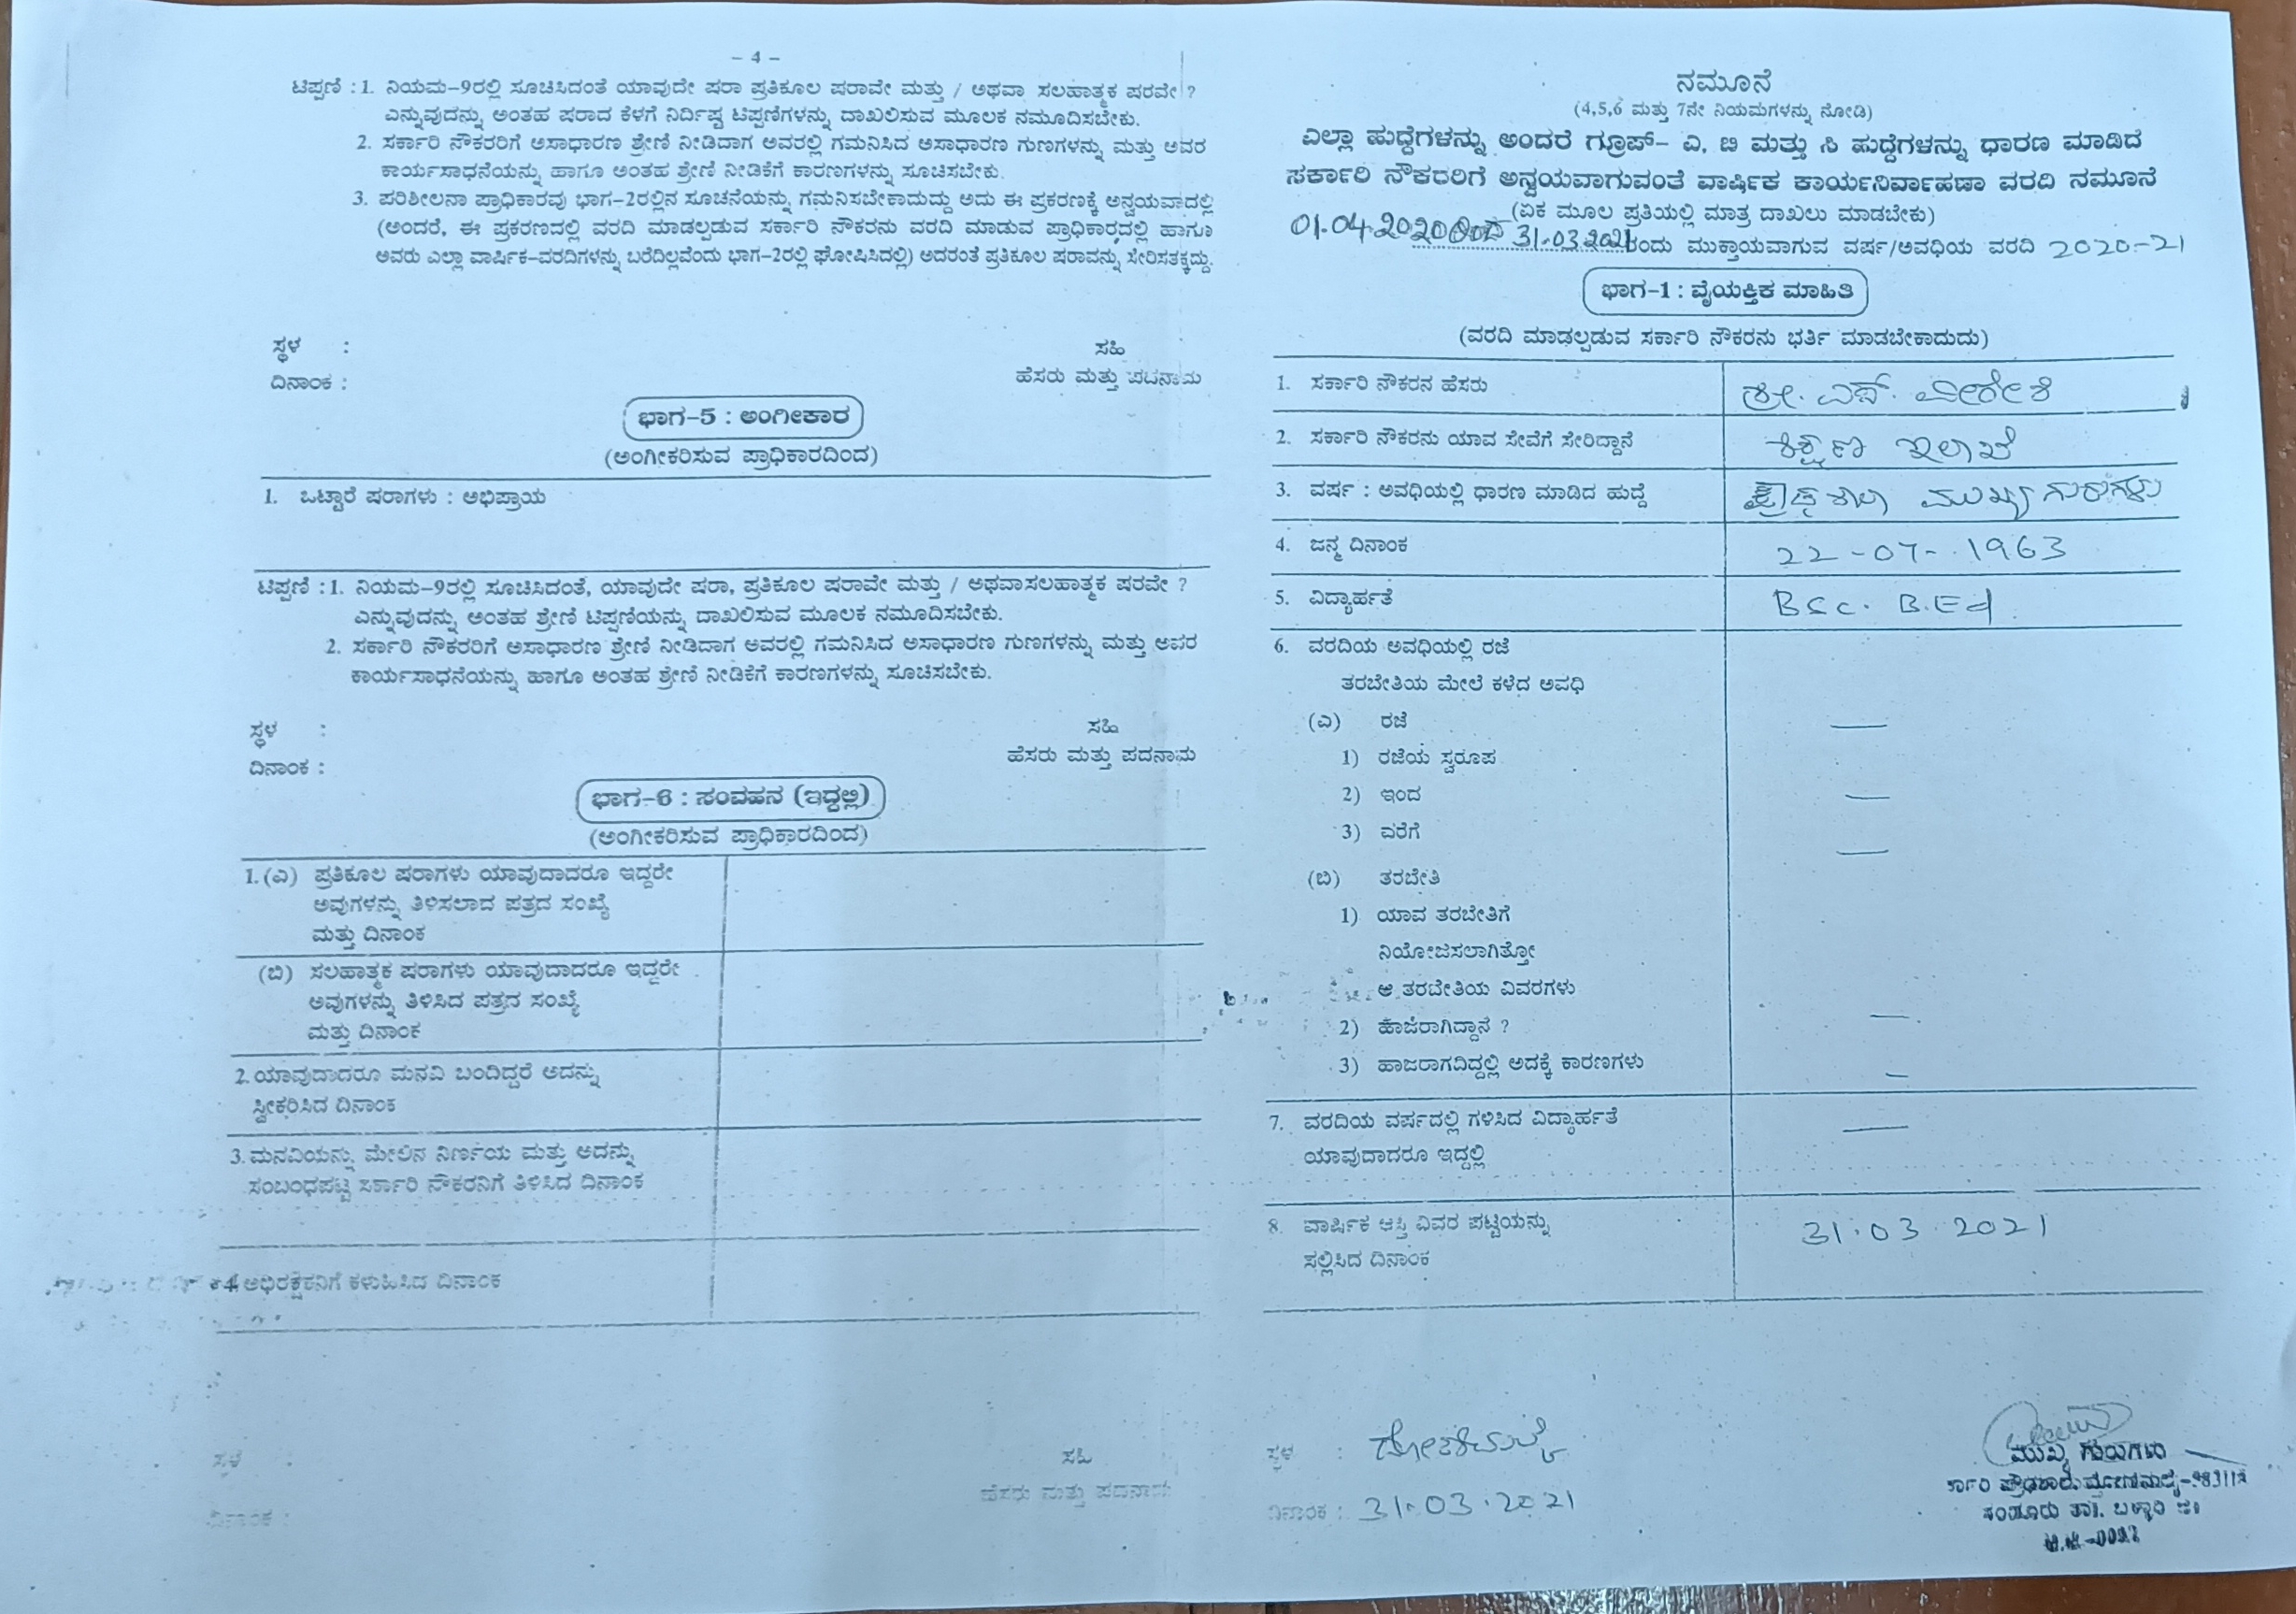 – 4 –
ಟಿಪ್ಪಣಿ : 1. ನಿಯಮ–9ರಲ್ಲಿ ಸೂಚಿಸಿದಂತೆ ಯಾವುದೇ ಷರಾ ಪ್ರತಿಕೂಲ ಷರಾವೇ ಮತ್ತು / ಅಥವಾ ಸಲಹಾತ್ಮಕ ಷರವೇ ?
ಎನ್ನುವುದನ್ನು ಅಂತಹ ಷರಾದ ಕೆಳಗೆ ನಿರ್ದಿಷ್ಟ ಟಿಪ್ಪಣಿಗಳನ್ನು ದಾಖಲಿಸುವ ಮೂಲಕ ನಮೂದಿಸಬೇಕು.
2. ಸರ್ಕಾರಿ ನೌಕರರಿಗೆ ಅಸಾಧಾರಣ ಶ್ರೇಣಿ ನೀಡಿದಾಗ ಅವರಲ್ಲಿ ಗಮನಿಸಿದ ಅಸಾಧಾರಣ ಗುಣಗಳನ್ನು ಮತ್ತು ಅವರ
ಕಾರ್ಯಸಾಧನೆಯನ್ನು ಹಾಗೂ ಅಂತಹ ಶ್ರೇಣಿ ನೀಡಿಕೆಗೆ ಕಾರಣಗಳನ್ನು ಸೂಚಿಸಬೇಕು.
3. ಪರಿಶೀಲನಾ ಪ್ರಾಧಿಕಾರವು ಭಾಗ–2ರಲ್ಲಿನ ಸೂಚನೆಯನ್ನು ಗಮನಿಸಬೇಕಾದುದ್ದು ಅದು ಈ ಪ್ರಕರಣಕ್ಕೆ ಅನ್ವಯವಾದಲ್ಲಿ
(ಅಂದರೆ, ಈ ಪ್ರಕರಣದಲ್ಲಿ ವರದಿ ಮಾಡಲ್ಪಡುವ ಸರ್ಕಾರಿ ನೌಕರನು ವರದಿ ಮಾಡುವ ಪ್ರಾಧಿಕಾರದಲ್ಲಿ ಹಾಗೂ
ಅವರು ಎಲ್ಲಾ ವಾರ್ಷಿಕ–ವರದಿಗಳನ್ನು ಬರೆದಿಲ್ಲವೆಂದು ಭಾಗ–2ರಲ್ಲಿ ಘೋಷಿಸಿದಲ್ಲಿ) ಅದರಂತೆ ಪ್ರತಿಕೂಲ ಷರಾವನ್ನು ಸೇರಿಸತಕ್ಕದ್ದು.
ಸ್ಥಳ : ಸಹಿ
ದಿನಾಂಕ : ಹೆಸರು ಮತ್ತು ಪದನಾಮ
ಭಾಗ–5 : ಅಂಗೀಕಾರ
(ಅಂಗೀಕರಿಸುವ ಪ್ರಾಧಿಕಾರದಿಂದ)
1. ಒಟ್ಟಾರೆ ಷರಾಗಳು : ಅಭಿಪ್ರಾಯ
ಟಿಪ್ಪಣಿ : 1. ನಿಯಮ–9ರಲ್ಲಿ ಸೂಚಿಸಿದಂತೆ, ಯಾವುದೇ ಷರಾ, ಪ್ರತಿಕೂಲ ಷರಾವೇ ಮತ್ತು / ಅಥವಾಸಲಹಾತ್ಮಕ ಷರವೇ ?
ಎನ್ನುವುದನ್ನು ಅಂತಹ ಶ್ರೇಣಿ ಟಿಪ್ಪಣಿಯನ್ನು ದಾಖಲಿಸುವ ಮೂಲಕ ನಮೂದಿಸಬೇಕು.
2. ಸರ್ಕಾರಿ ನೌಕರರಿಗೆ ಅಸಾಧಾರಣ ಶ್ರೇಣಿ ನೀಡಿದಾಗ ಅವರಲ್ಲಿ ಗಮನಿಸಿದ ಅಸಾಧಾರಣ ಗುಣಗಳನ್ನು ಮತ್ತು ಅವರ
ಕಾರ್ಯಸಾಧನೆಯನ್ನು ಹಾಗೂ ಅಂತಹ ಶ್ರೇಣಿ ನೀಡಿಕೆಗೆ ಕಾರಣಗಳನ್ನು ಸೂಚಿಸಬೇಕು.
ಸ್ಥಳ : ಸಹಿ
ದಿನಾಂಕ : ಹೆಸರು ಮತ್ತು ಪದನಾಮ
ಭಾಗ–6 : ಸಂವಹನ (ಇದ್ದಲ್ಲಿ)
(ಅಂಗೀಕರಿಸುವ ಪ್ರಾಧಿಕಾರದಿಂದ)
1. (ಎ) ಪ್ರತಿಕೂಲ ಷರಾಗಳು ಯಾವುದಾದರೂ ಇದ್ದರೇ
ಅವುಗಳನ್ನು ತಿಳಿಸಲಾದ ಪತ್ರದ ಸಂಖ್ಯೆ
ಮತ್ತು ದಿನಾಂಕ
(ಬಿ) ಸಲಹಾತ್ಮಕ ಷರಾಗಳು ಯಾವುದಾದರೂ ಇದ್ದರೇ
ಅವುಗಳನ್ನು ತಿಳಿಸಿದ ಪತ್ರದ ಸಂಖ್ಯೆ
ಮತ್ತು ದಿನಾಂಕ
2. ಯಾವುದಾದರೂ ಮನವಿ ಬಂದಿದ್ದರೆ ಅದನ್ನು
ಸ್ವೀಕರಿಸಿದ ದಿನಾಂಕ
3. ಮನವಿಯನ್ನು ಮೇಲಿನ ನಿರ್ಣಯ ಮತ್ತು ಅದನ್ನು
ಸಂಬಂಧಪಟ್ಟ ಸರ್ಕಾರಿ ನೌಕರನಿಗೆ ತಿಳಿಸಿದ ದಿನಾಂಕ
4. ಅಭಿರಕ್ಷಕನಿಗೆ ಕಳುಹಿಸಿದ ದಿನಾಂಕ
ಸ್ಥಳ : ಸಹಿ
ಹೆಸರು ಮತ್ತು ಪದನಾಮ
ದಿನಾಂಕ :
ನಮೂನೆ
(4,5,6 ಮತ್ತು 7ನೇ ನಿಯಮಗಳನ್ನು ನೋಡಿ)
ಎಲ್ಲಾ ಹುದ್ದೆಗಳನ್ನು ಅಂದರೆ ಗ್ರೂಪ್– ಎ, ಬಿ ಮತ್ತು ಸಿ ಹುದ್ದೆಗಳನ್ನು ಧಾರಣ ಮಾಡಿದ
ಸರ್ಕಾರಿ ನೌಕರರಿಗೆ ಅನ್ವಯವಾಗುವಂತೆ ವಾರ್ಷಿಕ ಕಾರ್ಯನಿರ್ವಾಹಣಾ ವರದಿ ನಮೂನೆ
(ಏಕ ಮೂಲ ಪ್ರತಿಯಲ್ಲಿ ಮಾತ್ರ ದಾಖಲು ಮಾಡಬೇಕು)
01.04.2020 31.03.2021ರಂದು ಮುಕ್ತಾಯವಾಗುವ ವರ್ಷ/ಅವಧಿಯ ವರದಿ 2020–21
ಭಾಗ–1 : ವೈಯಕ್ತಿಕ ಮಾಹಿತಿ
(ವರದಿ ಮಾಡಲ್ಪಡುವ ಸರ್ಕಾರಿ ನೌಕರನು ಭರ್ತಿ ಮಾಡಬೇಕಾದುದು)
1. ಸರ್ಕಾರಿ ನೌಕರನ ಹೆಸರು ಶ್ರೀ.
2. ಸರ್ಕಾರಿ ನೌಕರನು ಯಾವ ಸೇವೆಗೆ ಸೇರಿದ್ದಾನೆ ಶಿಕ್ಷಣ ಇಲಾಖೆ
3. ವರ್ಷ : ಅವಧಿಯಲ್ಲಿ ಧಾರಣ ಮಾಡಿದ ಹುದ್ದೆ ಪ್ರೌಢಶಾಲಾ ಮುಖ್ಯಗುರುಗಳು
4. ಜನ್ಮ ದಿನಾಂಕ 22–07–1963
5. ವಿದ್ಯಾರ್ಹತೆ BSc. B.Ed
6. ವರದಿಯ ಅವಧಿಯಲ್ಲಿ ರಜೆ
ತರಬೇತಿಯ ಮೇಲೆ ಕಳೆದ ಅವಧಿ
(ಎ) ರಜೆ —
1) ರಜೆಯ ಸ್ವರೂಪ
2) ಇಂದ —
3) ವರೆಗೆ —
(ಬಿ) ತರಬೇತಿ
1) ಯಾವ ತರಬೇತಿಗೆ
ನಿಯೋಜಿಸಲಾಗಿತ್ತೋ
ಆ ತರಬೇತಿಯ ವಿವರಗಳು
2) ಹಾಜರಾಗಿದ್ದಾನೆ ? —
3) ಹಾಜರಾಗದಿದ್ದಲ್ಲಿ ಅದಕ್ಕೆ ಕಾರಣಗಳು –
7. ವರದಿಯ ವರ್ಷದಲ್ಲಿ ಗಳಿಸಿದ ವಿದ್ಯಾರ್ಹತೆ —
ಯಾವುದಾದರೂ ಇದ್ದಲ್ಲಿ
8. ವಾರ್ಷಿಕ ಆಸ್ತಿ ವಿವರ ಪಟ್ಟಿಯನ್ನು 31.03.2021
ಸಲ್ಲಿಸಿದ ದಿನಾಂಕ
ಸ್ಥಳ :
ದಿನಾಂಕ : 31.03.2021
ಮುಖ್ಯ ಗುರುಗಳು
ಸಂಡೂರು ತಾ. ಬಳ್ಳಾರಿ ಜಿ